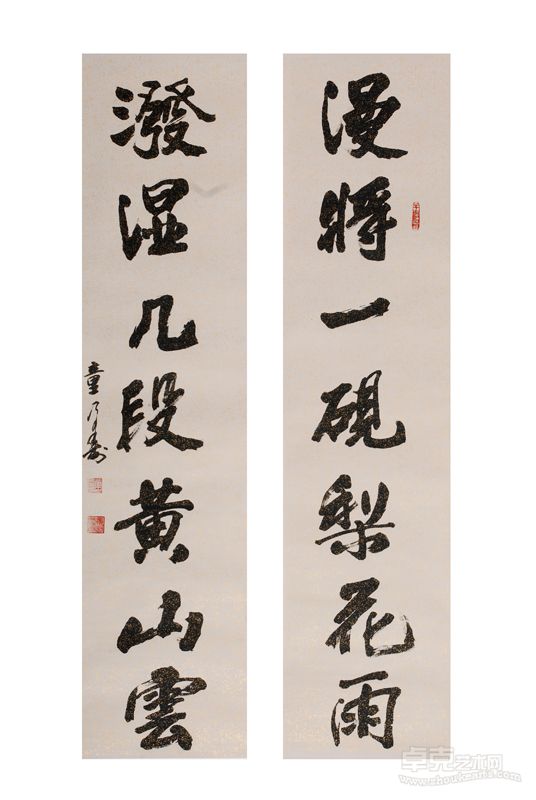 漫将一硯梨花雨
潑湿几段黄山雲
童乃寿
卓克艺术网
www.zhoukearts.com